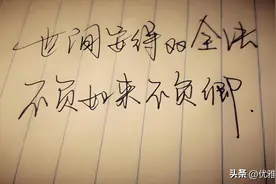 世间安得双全法
不负如来不负卿.
头条@优雅